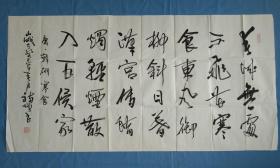 春城無處
不飛花寒
食東風御
柳斜日暮
漢宮傳蜡
燭輕煙散
入五侯家
唐韓翃寒食